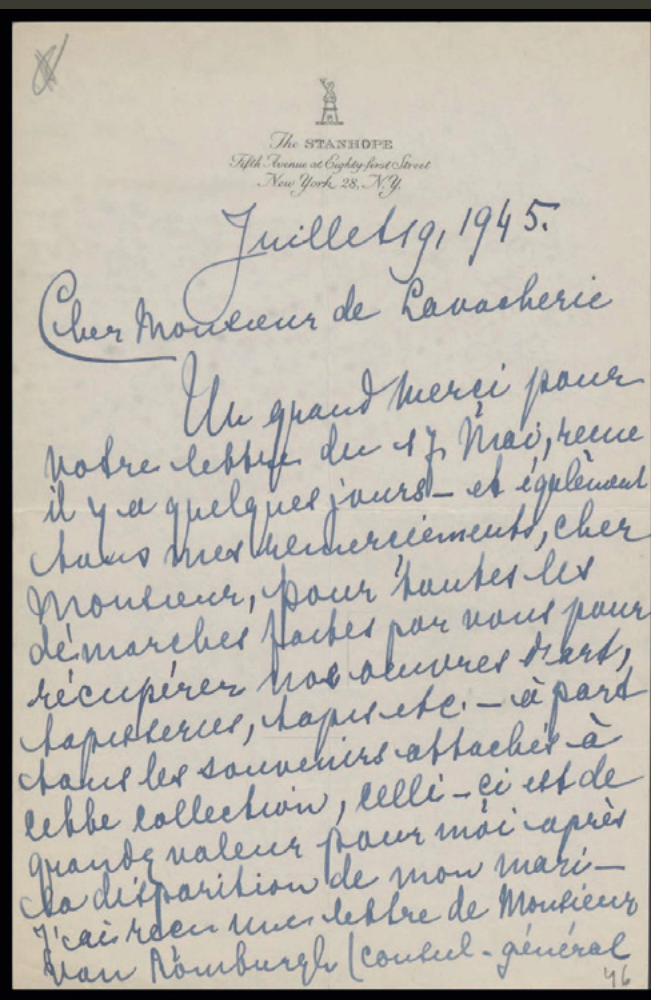 The STANHOPE
Fifth Avenue at Eighty-first Street
New York 28, N.Y.
Juillet 19, 1945.
Cher Monsieur de Lavacherie
Un grand merci pour
votre lettre du 17 Mai, recue
il y a quelques jours - et également
tous mes remerciements, cher
Monsieur, pour toutes les
démarches faites par vous pour
récupérer nos oeuvres d'art,
tapisseries, tapis etc. - à part
tous les souvenirs attachés à
cette collection, celle-ci est de
grande valeur pour moi après
la disparition de mon mari -
J'ai recu une lettre de Monsieur
Van Romburgh (consul-général
46